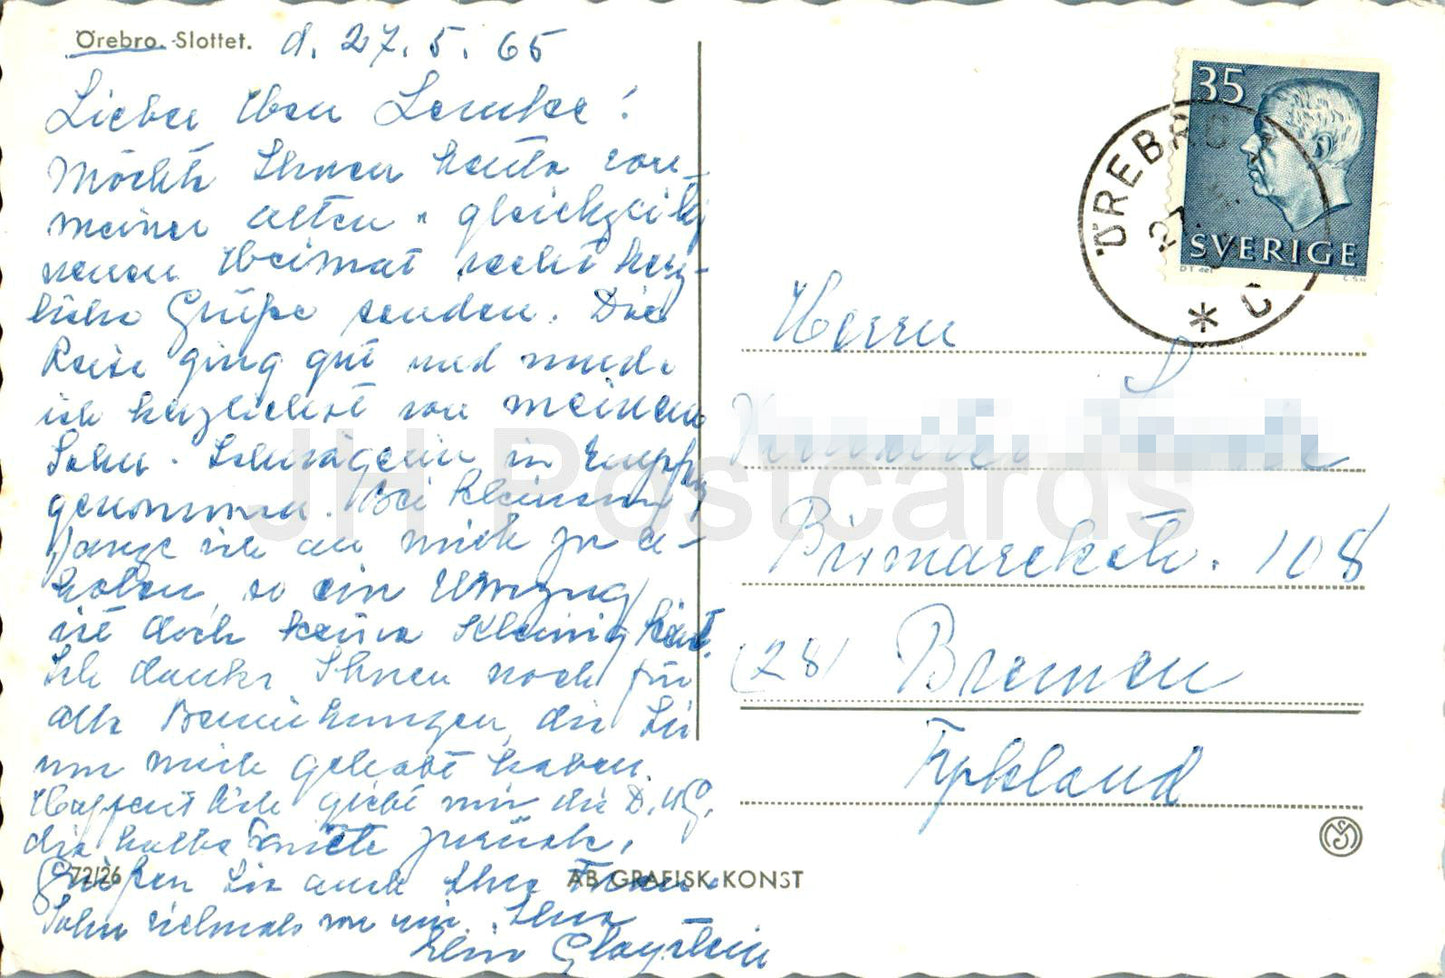 Örebro. Slottet. d. 27. 5. 65
Lieber Herr Lemke!
Möchte Ihnen heute von
meiner alten u gleichzeitig
neuen Heimat recht herz-
liche Grüße senden. Die
Reise ging gut und wurde
ich herzlichst von meinem
Sohn u. Schwägerin in Empfg
genommen. Bei kleinem
fange ich an mich zu er-
holen, so ein Umzug
ist doch keine Kleinigkeit.
Ich danke Ihnen noch für
alle Bemühungen, die Sie
um mich gehabt haben.
Hoffentlich giebt mir die D.A.G.
die halbe Miete zurück.
Grüßen Sie auch Ihre Frau u.
Sohn vielmals von mir. Ihre
Elin
35
SVERIGE
ÖREBRO
27
Herrn
Bismarckstr. 108
(28) Bremen
Tyskland
72/26
AB GRAFISK KONST
JH Postcards